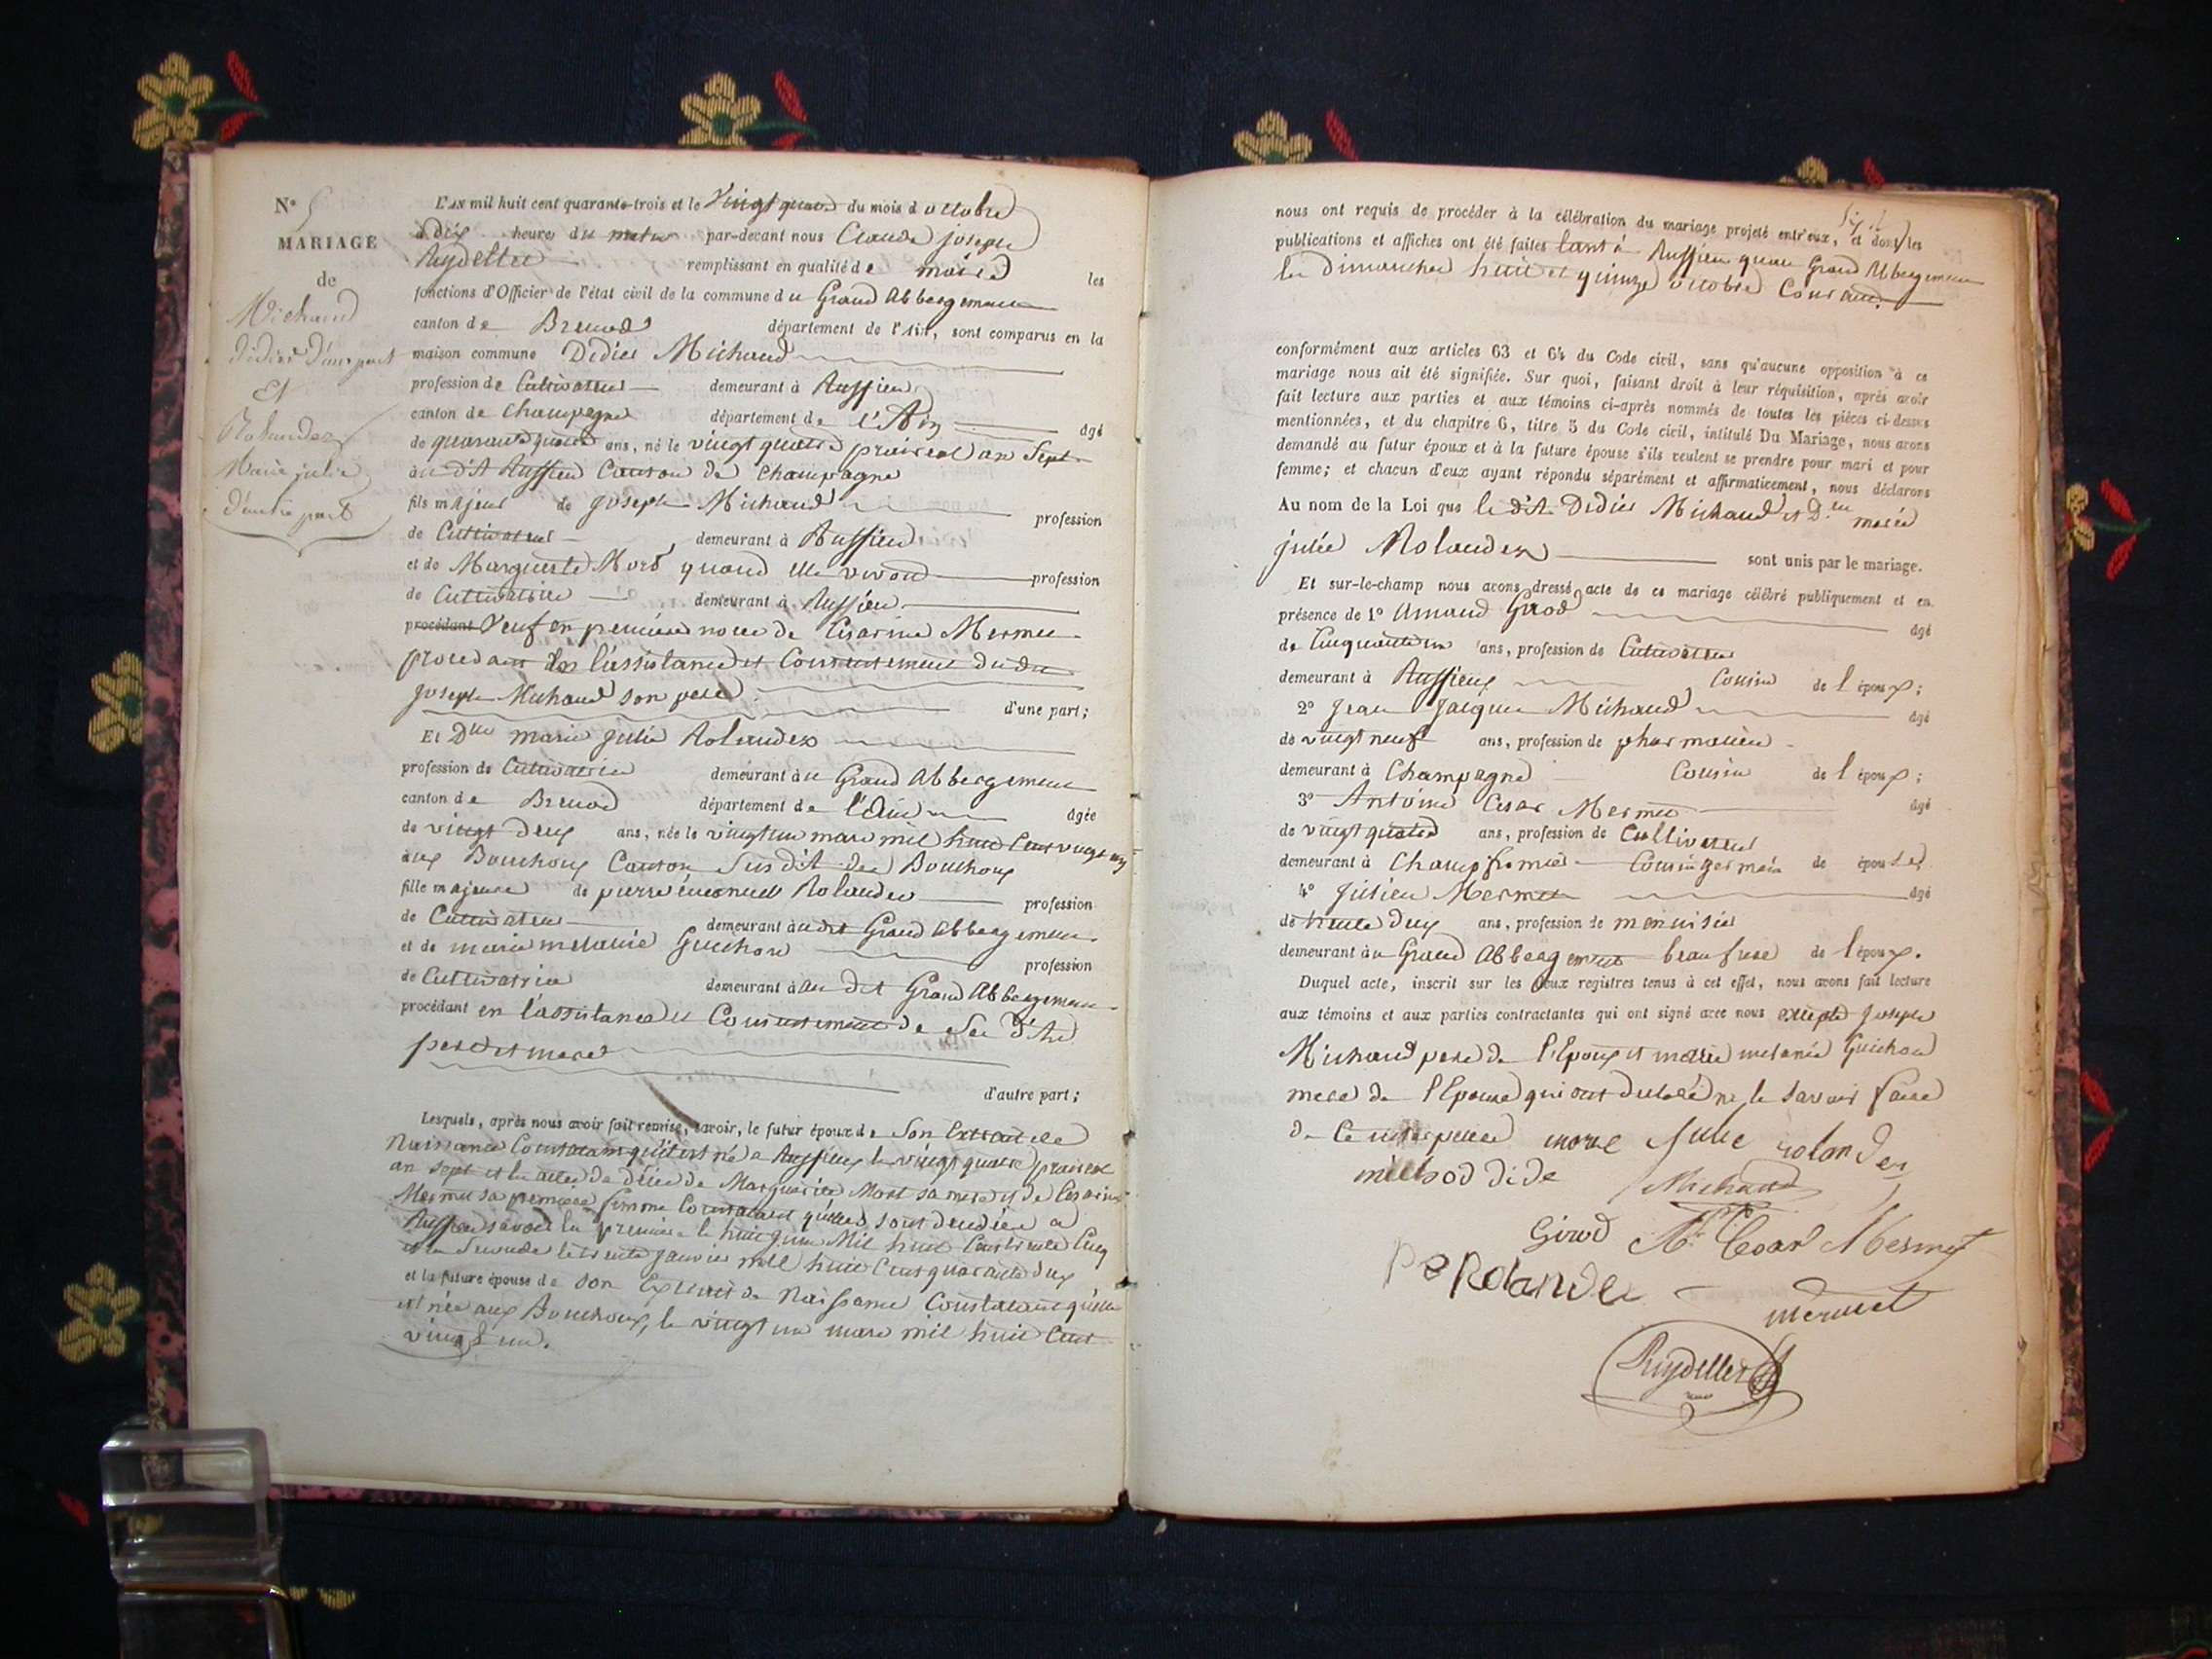 N° 5
MARIAGE
de
Michaud
didier d'une part
Et
Rolandez
Marie julie
d'autre part
L'AN mil huit cent quarante-trois et le Vingt quatre du mois d octobre
à dix heures du matin par-devant nous Claude joseph
Ruydellet remplissant en qualité de maire les
fonctions d'Officier de l'état civil de la commune du Grand Abbergement
canton de Brenod département de l'Ain, sont comparus en la
maison commune Didier Michaud
profession de Cultivateur demeurant à Ruffieu
canton de Champagne département de l'Ain âgé
de quarante quatre ans, né le vingt quatre prairial an Sept
au dit Ruffieu Canton de Champagne
fils majeur de joseph Michaud profession
de Cultivateur demeurant à Ruffieu
et de Marguerite quand elle vivait profession
de Cultivatrice demeurant à Ruffieu
procédant Veuf en première noce de Cesarine Mermet
procedant de l'assistance et Consentement du dit
joseph Michaud son père d'une part;
Et Dlle marie julie Rolandez
profession de Cultivatrice demeurant au Grand Abbergement
canton de Brenod département de l'Ain âgée
de vingt deux ans, née le vingt un mars mil huit Cent vingt un
aux Bouchoux Canton Susdit des Bouchoux
fille majeure de pierre Rolandez profession
de Cultivateur demeurant audit Grand Abbergement
et de marie melanie Guichon profession
de Cultivatrice demeurant à au dit Grand Abbergement
procédant en l'assistance et Consentement de Ses d'ts
père et mère
d'autre part;
Lesquels, après nous avoir fait remise, savoir, le futur époux de Son Extrait de
Naissance Constatant qu'il est né a Ruffieux le vingt quatre prairial
an sept et les actes de décès de Marguerite sa mère et de Cesarine
Mermet sa première femme Constatant qu'elles sont deudées a
Ruffieu savoir la première le huit juin Mil huit Cent trente Cinq
et la Seconde le trente janvier mil huit Cent quarante deux
et la future épouse de son Extrait de Naissance Constatant qu'elle
est née aux Bouchoux, le vingt un mars mil huit Cent
vingt un.
nous ont requis de procéder à la célébration du mariage projeté entr'eux, et dont les
publications et affiches ont été faites tant à Ruffieu quau Grand Abbergement
les Dimanches huit et quinze octobre Courant.
conformément aux articles 63 et 64 du Code civil, sans qu'aucune opposition à ce
mariage nous ait été signifiée. Sur quoi, faisant droit à leur réquisition, après avoir
fait lecture aux parties et aux témoins ci-après nommés de toutes les pièces ci-dessus
mentionnées, et du chapitre 6, titre 5 du Code civil, intitulé Du Mariage, nous avons
demandé au futur époux et à la future épouse s'ils veulent se prendre pour mari et pour
femme; et chacun d'eux ayant répondu séparément et affirmativement, nous déclarons
Au nom de la Loi que le dit Didier Michaud et Dlle marie
julie Rolandez sont unis par le mariage.
Et sur-le-champ nous avons dressé acte de ce mariage célébré publiquement et en
présence de 1° Amand Girod âgé
de Cinquante un ans, profession de Cultivateur
demeurant à Ruffieux Cousin de l époux;
2° Jean Jacques Michaud âgé
de vingt neuf ans, profession de pharmacien
demeurant à Champagne Cousin de l époux;
3° Antoine Cesar Mermet âgé
de vingt quatre ans, profession de Cultivateur
demeurant à Champfromier Cousin germain de épouse
4° Julien Mermet âgé
de trente deux ans, profession de menuisier
demeurant au Grand Abbergement beau frere de l époux.
Duquel acte, inscrit sur les deux registres tenus à cet effet, nous avons fait lecture
aux témoins et aux parties contractantes qui ont signé avec nous excepté joseph
Michaud père de l'Epoux et marie melanie Guichon
mère de l'Epouse qui ont declaré ne le Savoir faire
de Ce interpellé marie Julie rolandez
Michaud
Girod Cesar Mermet
Rolandez
mermet
Ruydellet